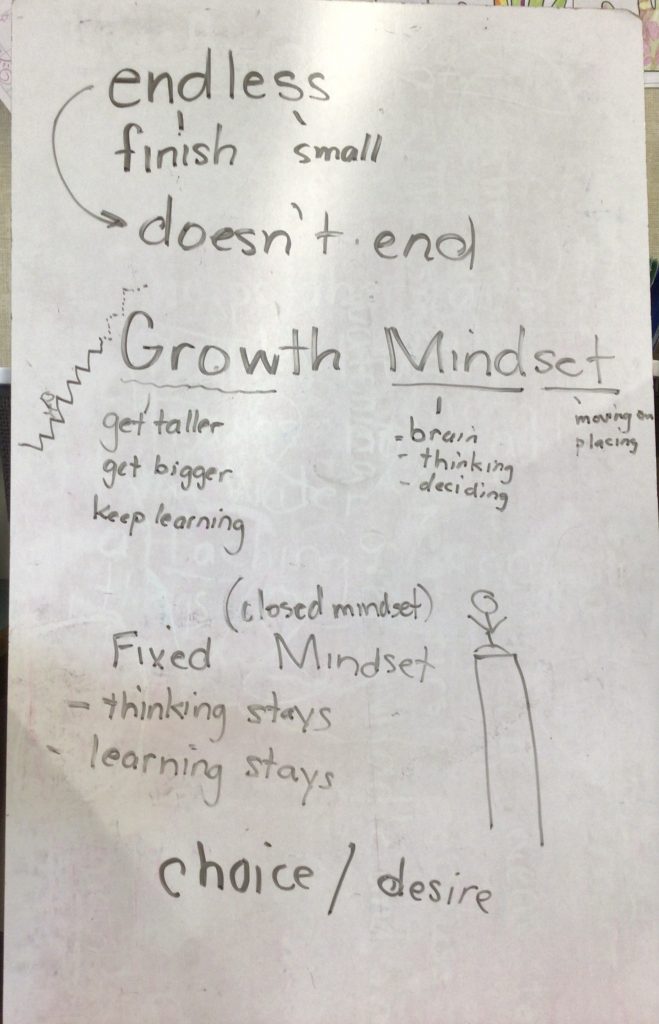 endless
finish small
doesn't end
Growth Mindset
get taller
get bigger
keep learning
- brain
- thinking
- deciding
moving on
placing
(closed mindset)
Fixed Mindset
- thinking stays
- learning stays
choice / desire